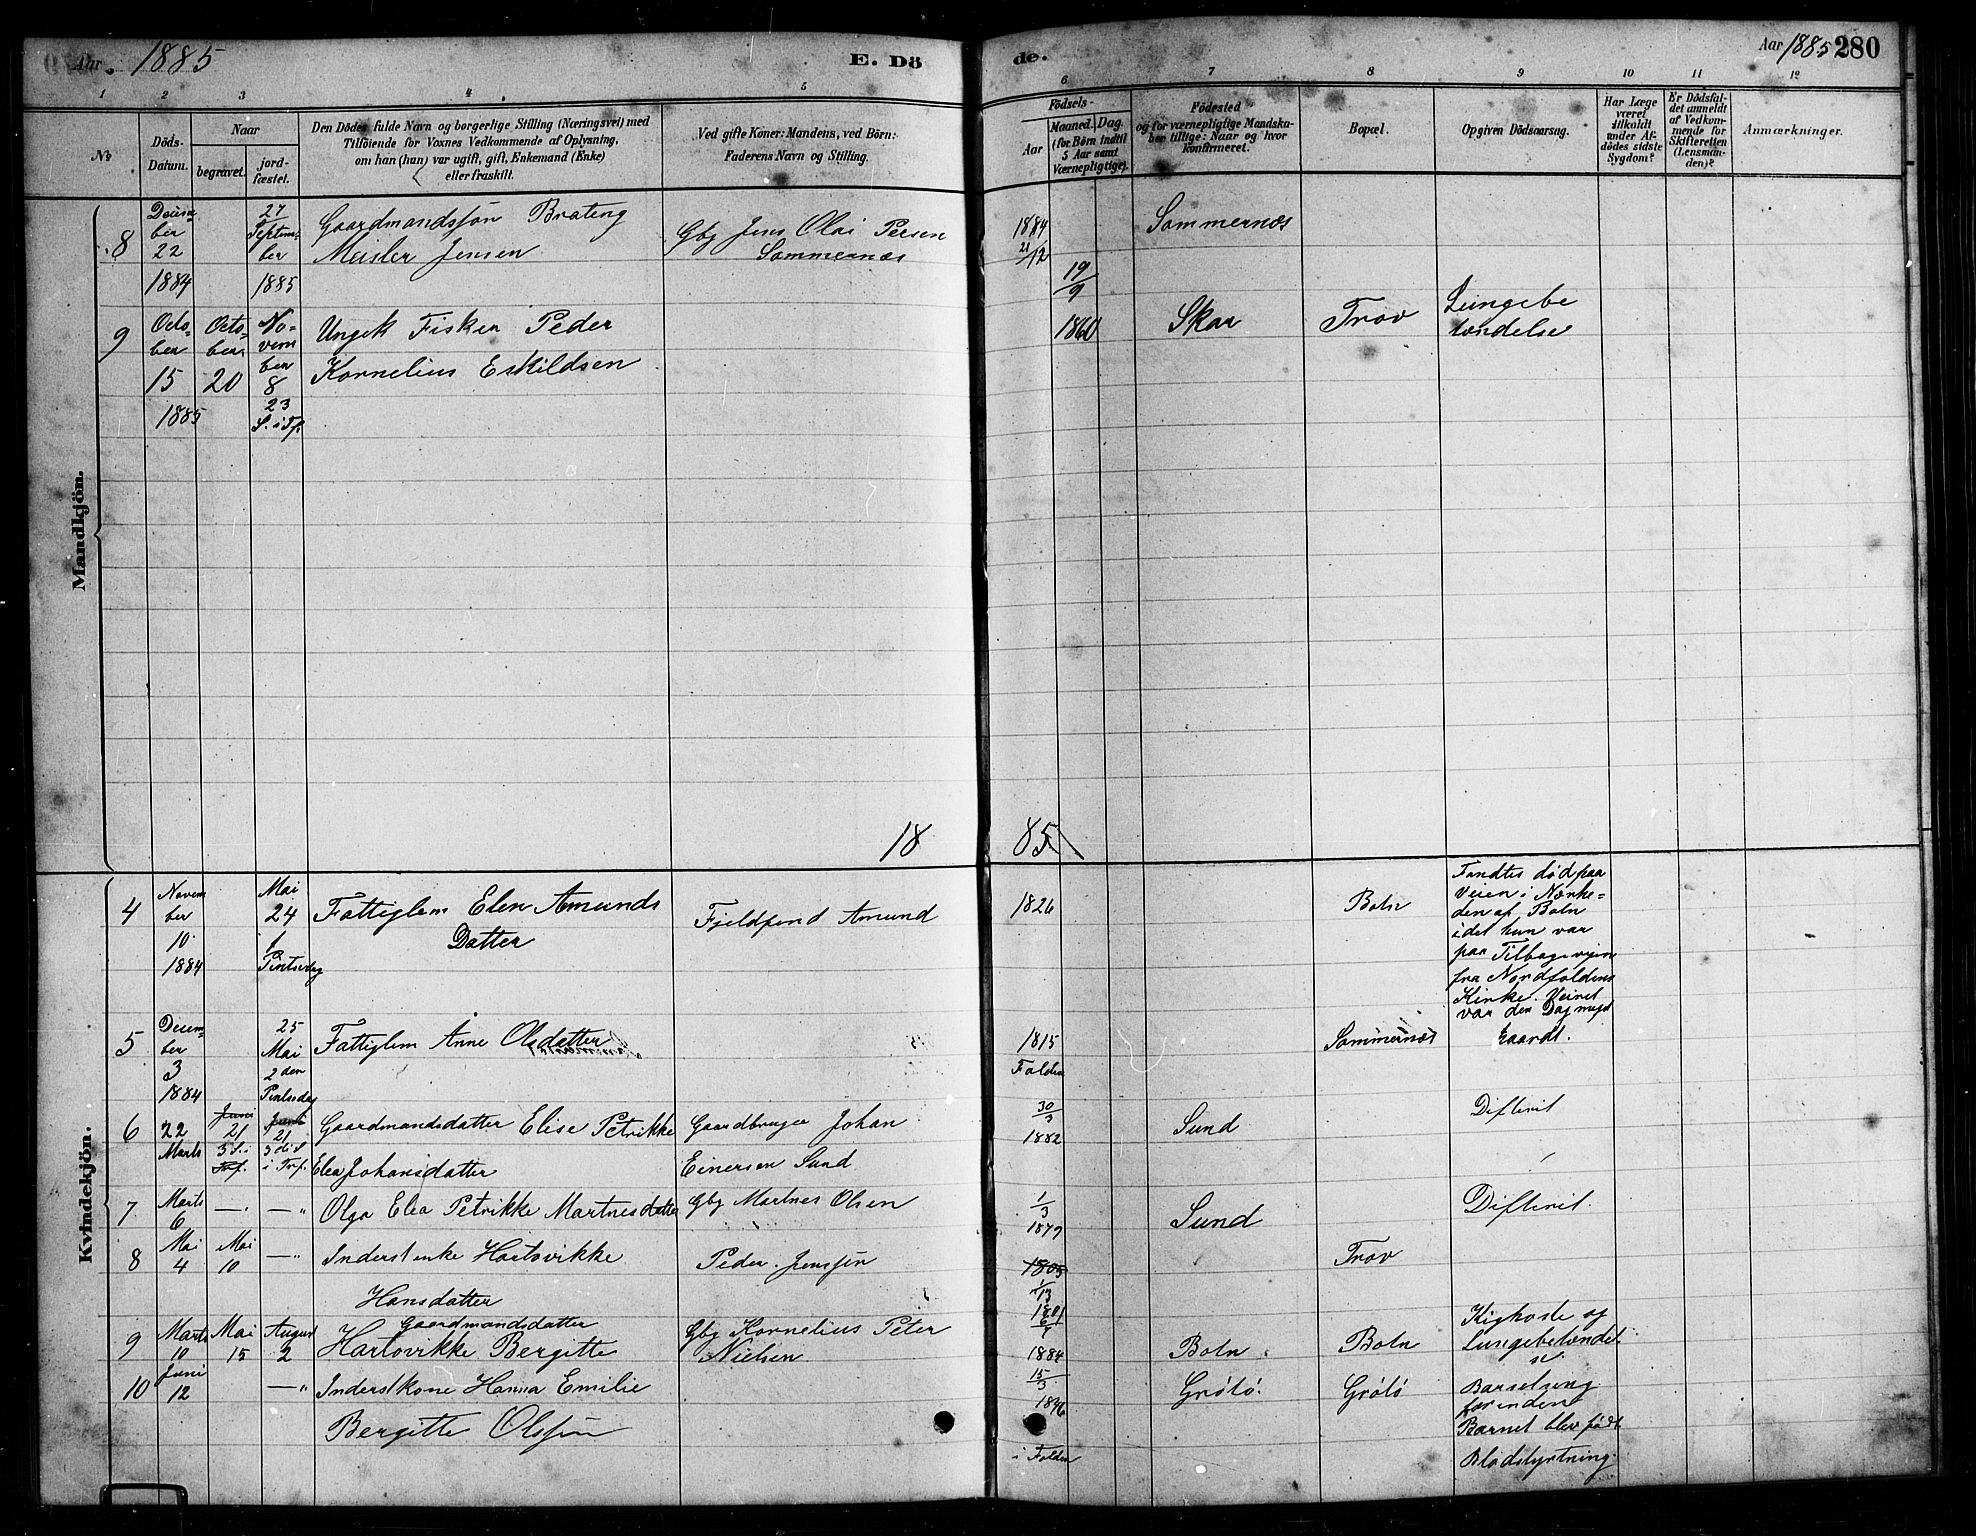 Aar 1885
E. Dö
de.
Aar 1885 280
1 2 3 4 5 6 7 8 9 10 11 12
No
Döds-
Datum.
Naar
begravet.
jord-
fæstet.
Den Dödes fulde Navn og borgerlige Stilling (Næringsvei) med
Tilföiende for Voxnes Vedkommende af Oplysning,
om han (hun) var ugift, gift, Enkemand (Enke)
eller fraskilt.
Ved gifte Koner: Mandens, ved Börn:
Faderens Navn og Stilling.
Födsels-
Aar
Maaned. Dag.
(for Børn indtil
5 Aar samt
Værnepligtige).
Födested
og for værnepligtige Mandska-
ber tillige: Naar og hvor
konfirmeret.
Bopæl.
Opgiven Dödsaarsag.
Har Læge
været
tilkaldt
under Af-
dödes sidste
Sygdom?
Er Dödsfal-
det anmeldt
af Vedkom-
mende for
Skifteretten
(Lensman-
den)?
Anmærkninger.
Mandkjön.
8
Decem
ber
22
1884
27
Septem-
ber
1885
Gaardmandssøn Brateng
Meisler Jensen
Gbg Jens Olai Persen
Sommernæs
1884
21/12
Sommernæs
9
Octo-
ber
15
1885
Octo-
ber
20
No-
vem
ber
8
23
S. i Tf.
Ungk Fisker Peder
Kornelius Eskildsen
19/9
1860
Skar
Trov
Lungebe
tændelse
18 85
Kvindekjön.
4
Novem
ber
10
1884
Mai
24
1
Pintsedag
Fattiglem Elen Amunds
Datter
Fjeldfind Amund
1826
Botn
Fandtes død paa
Veien i Nærhe-
den af Botn
idet hun var
paa Tilbageveien
fra Nordfoldens
Kirke. Veiret
var den Dag meget
haardt.
5
Decem-
ber
3
1884
25
Mai
2den
Pintsedag
Fattiglem Anne Olsdatter
1815
Folden
Sommernæs
6
22
Marts
Juni
21
3 S. i
Tref.
Juni
21
3 die S
i Tref.
Gaardmandsdatter Elise Petrikke
Elea Johansdatter
Gaardbruger Johan
Einersen Sund
30/3
1882
Sund
Difterit
7
Marts
6
—
— "
Olga Elea Petrikke Martnesdatter
Gbg Martnes Olsen
1/3
1879
Sund
Difterit.
8
Mai
4
Mai
10
— "
Inderstenke Hartvikke
Hansdatter
Peder Jenssøn
1805
1/13
1801
Trov
9
Marts
10
Mai
15
August
2
Gaardmandsdatter
Hartvikke Bergitte
Gbg Kornelius Peter
Nielsen
1884
Botn
Botn
Kighoste og
Lungebetændel
se.
10
Juni
12
— "
Inderstkone Hanna Emilie
Bergitte Olssøn
15/3
1846
i Folden
Grøtø
Grøtø
Barselseng
før inden
Barnet blev født
Blodstyrtning.